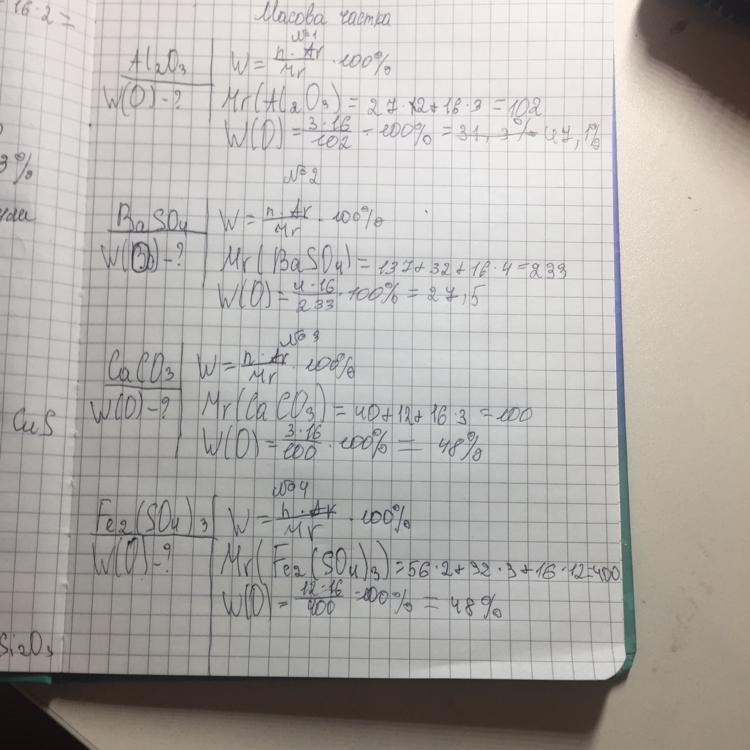 16·2=
Масова частка
№1
Al₂O₃ W = n·Ar/Mr · 100%
W(O)-? Mr(Al₂O₃) = 27·2+16·3 = 102
W(O) = 3·16/102 · 100% = 31,3% 47,1%
3%
№2
BaSO₄ W = n·Ar/Mr · 100%
W(O)-? Mr(BaSO₄) = 137+32+16·4=233
W(O) = 4·16/233 · 100% = 27,5
№3
CaCO₃ W = n·Ar/Mr · 100%
W(O)-? Mr(CaCO₃) = 40+12+16·3 = 100
CuS
W(O) = 3·16/100 · 100% = 48%
№4
Fe₂(SO₄)₃ W = n·Ar/Mr · 100%
W(O)-? Mr(Fe₂(SO₄)₃) = 56·2+32·3+16·12=400
W(O) = 12·16/400 · 100% = 48%
Si₂O₃